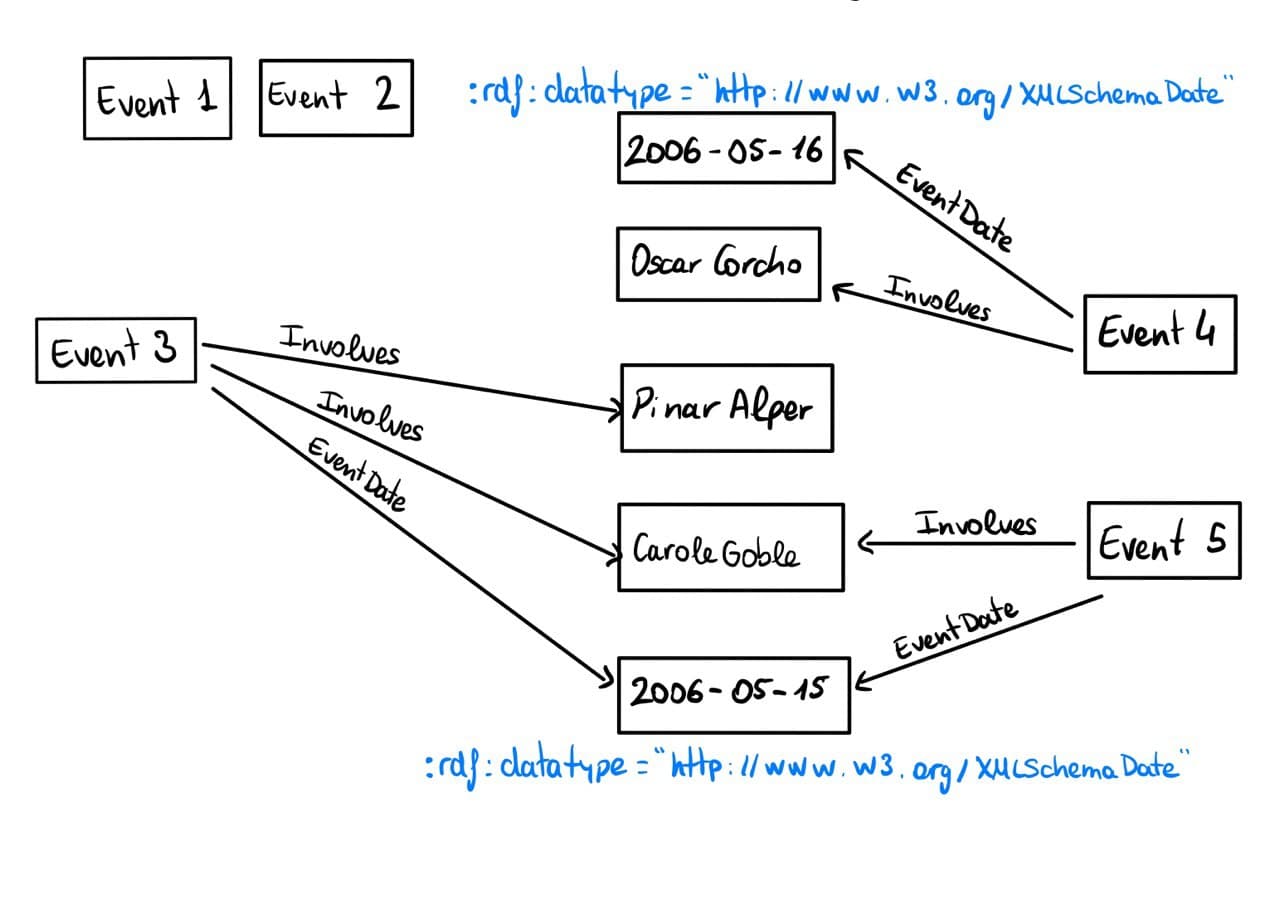 Event 1
Event 2
:rdf:datatype="http://www.w3.org/XMLSchemaDate"
2006-05-16
EventDate
Oscar Corcho
Involves
Event 4
Event 3
Involves
Pinar Alper
Involves
EventDate
Carole Goble
Involves
Event 5
EventDate
2006-05-15
:rdf:datatype="http://www.w3.org/XMLSchemaDate"